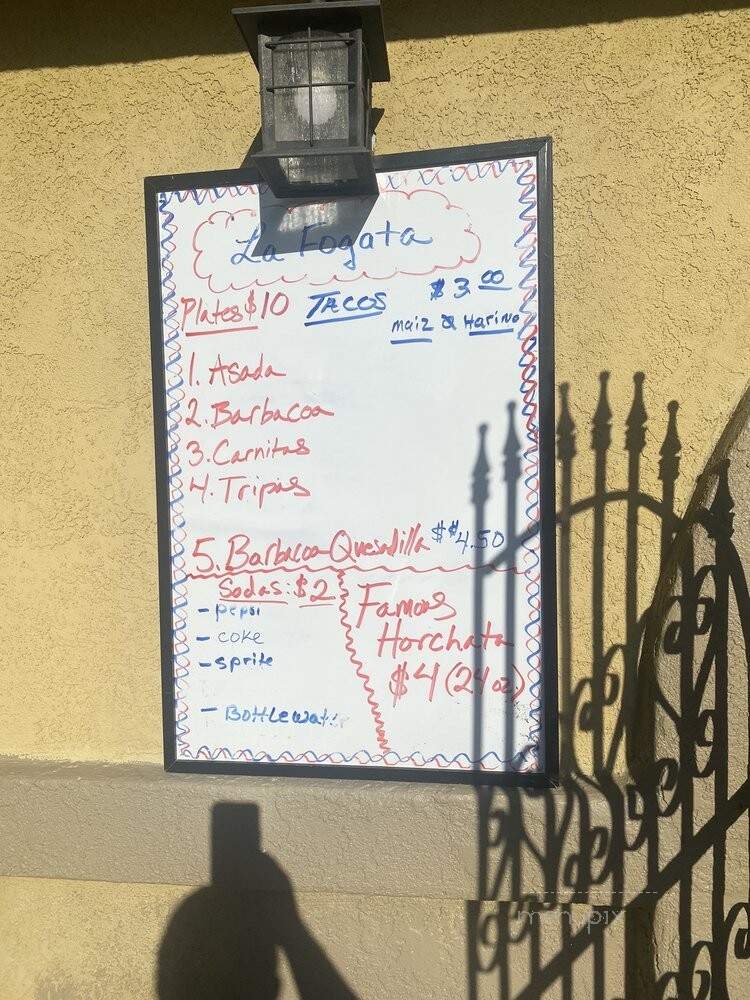 La Fogata
Plates $10 TACOS $3.00
maiz & Harina
1. Asada
2. Barbacoa
3. Carnitas
4. Tripas
5. Barbacoa Quesadilla $4.50
Sodas: $2
- pepsi
- coke
- sprite
- Bottle water
Famous
Horchata
$4 (24 oz.)